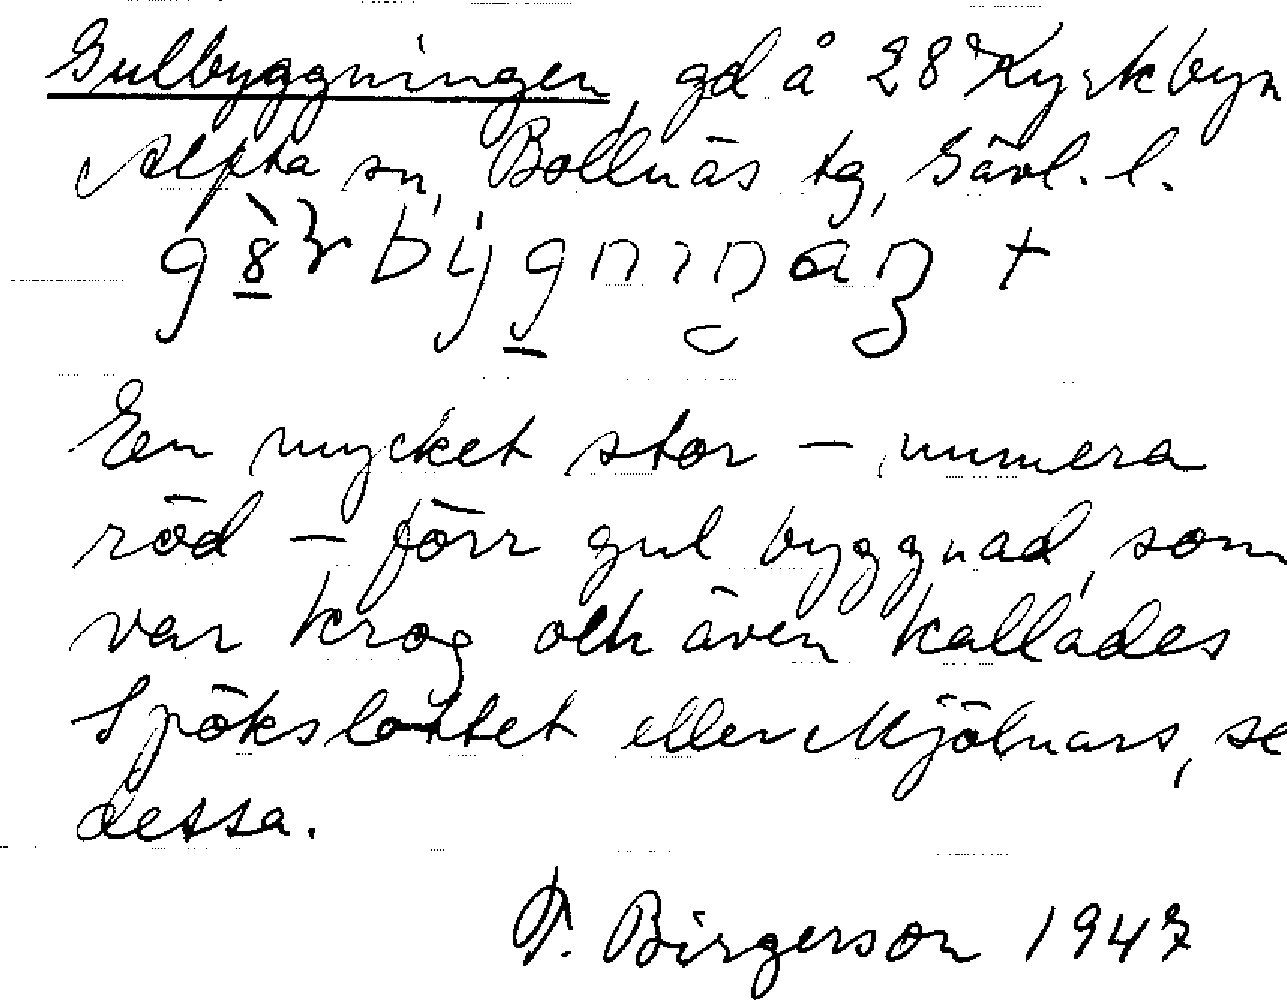 Gulbyggningen, gd å 28 Kyrkbyn
Alfta sn, Bollnäs tg, Gävl. l.
En mycket stor – numera
röd – förr gul byggnad, som
var krog och även kallades
Spökslottet eller Mjölnars, se
dessa.
F. Birgerson 1947